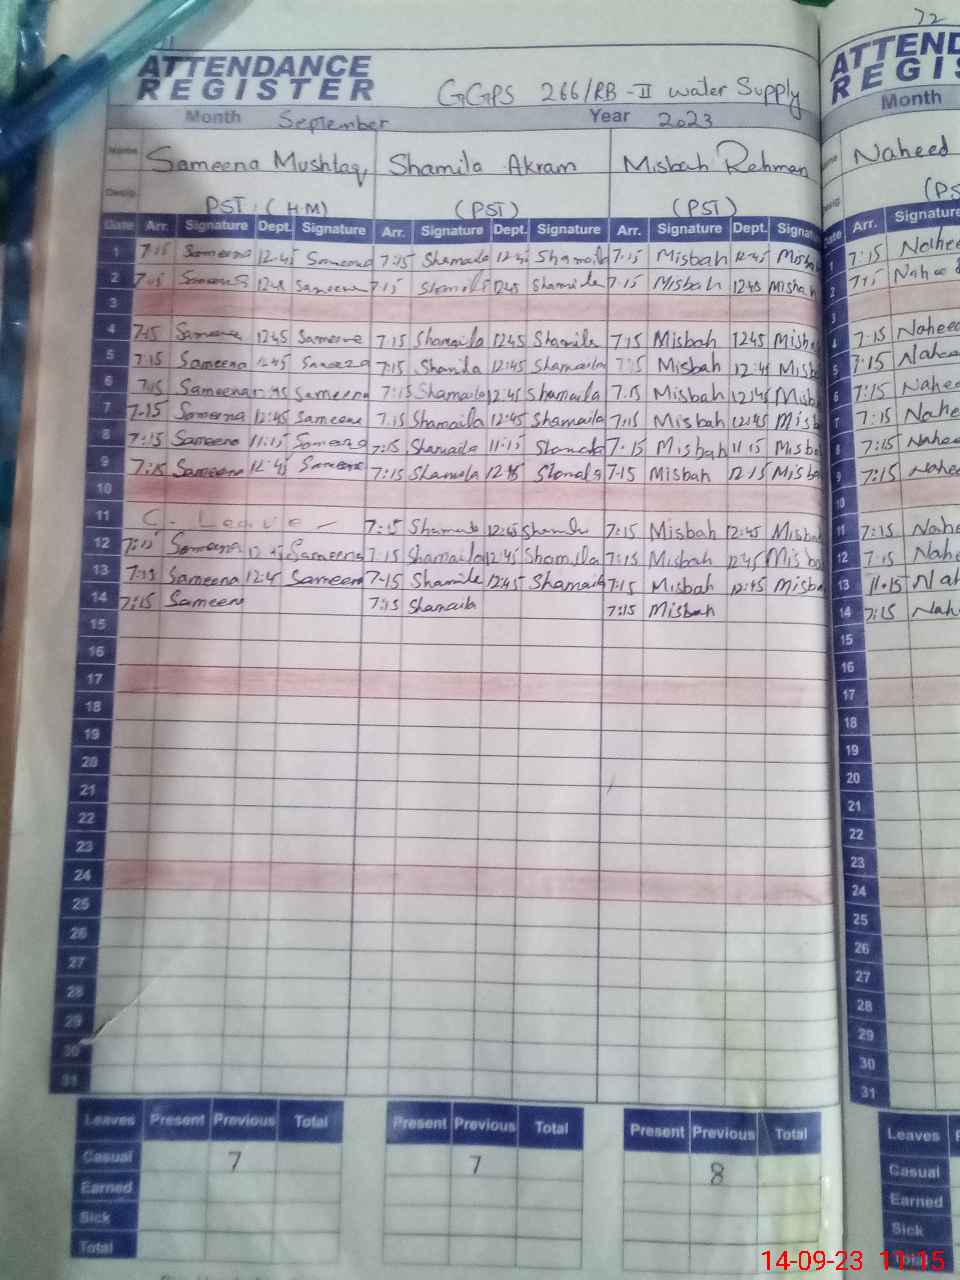 ATTENDANCE
REGISTER GGPS 266/RB-II Water Supply
Month September Year 2023
Name Sameena Mushtaq Shamila Akram Misbah Rehman
PST (H.M) (PST) (PST)
Date Arr. Signature Dept. Signature Arr. Signature Dept. Signature Arr. Signature Dept.
1 7:15 Sameena 12:45 Sameena 7:15 Shamaila 12:45 Shamaila 7:15 Misbah 12:45
2 Sameena 1245 Sameena 7:15 Shamila 1245 Shamila 7:15 Misbah 1245 Misbah
3
4 7:15 Sameena 1245 Sameena 7:15 Shamaila 1245 Shamila 7:15 Misbah 1245
5 7:15 Sameena 12:45 Sameena 7:15 Shamila 12:45 Shamaila 7:15 Misbah 12:45
6 7:15 Sameena Sameena 7:15 Shamaila 12:45 Shamaila 7:15 Misbah 12:45
7 7:15 Sameena 12:45 Sameena 7:15 Shamaila 12:45 Shamaila 7:15 Misbah 12:45
8 7:15 Sameena 11:15 Sameena 7:15 Shamaila 11:15 7:15 Misbah 11:15
9 7:15 Sameena 12:45 Sameena 7:15 Shamila 12:45 7:15 Misbah 12:15
10
11 C. Leave 7:15 12:45 7:15 Misbah 12:45
12 7:15 Sameena Sameena 7:15 Shamaila 12:45 Shamila 7:15 Misbah 12:45
13 7:15 Sameena 12:45 Sameena 7:15 Shamila 12:45 Shamaila 7:15 Misbah 12:45
14 7:15 Sameena 7:15 Shamaila 7:15 Misbah
15
16
17
18
19
20
21
22
23
24
25
26
27
28
29
30
31
Leaves Present Previous Total Present Previous Total Present Previous Total
Casual 7 7 8
Earned
Sick
Total
72
Month
Naheed
Date Arr. Signature
1 7:15
2
3
4 7:15 Naheed
5 7:15
6 7:15
7 7:15
8 7:15
9 7:15
10
11 7:15
12 7:15
13 11:15
14 7:15
15
16
17
18
19
20
21
22
23
24
25
26
27
28
29
30
31
Leaves
Casual
Earned
Sick
Total
14-09-23 11:15